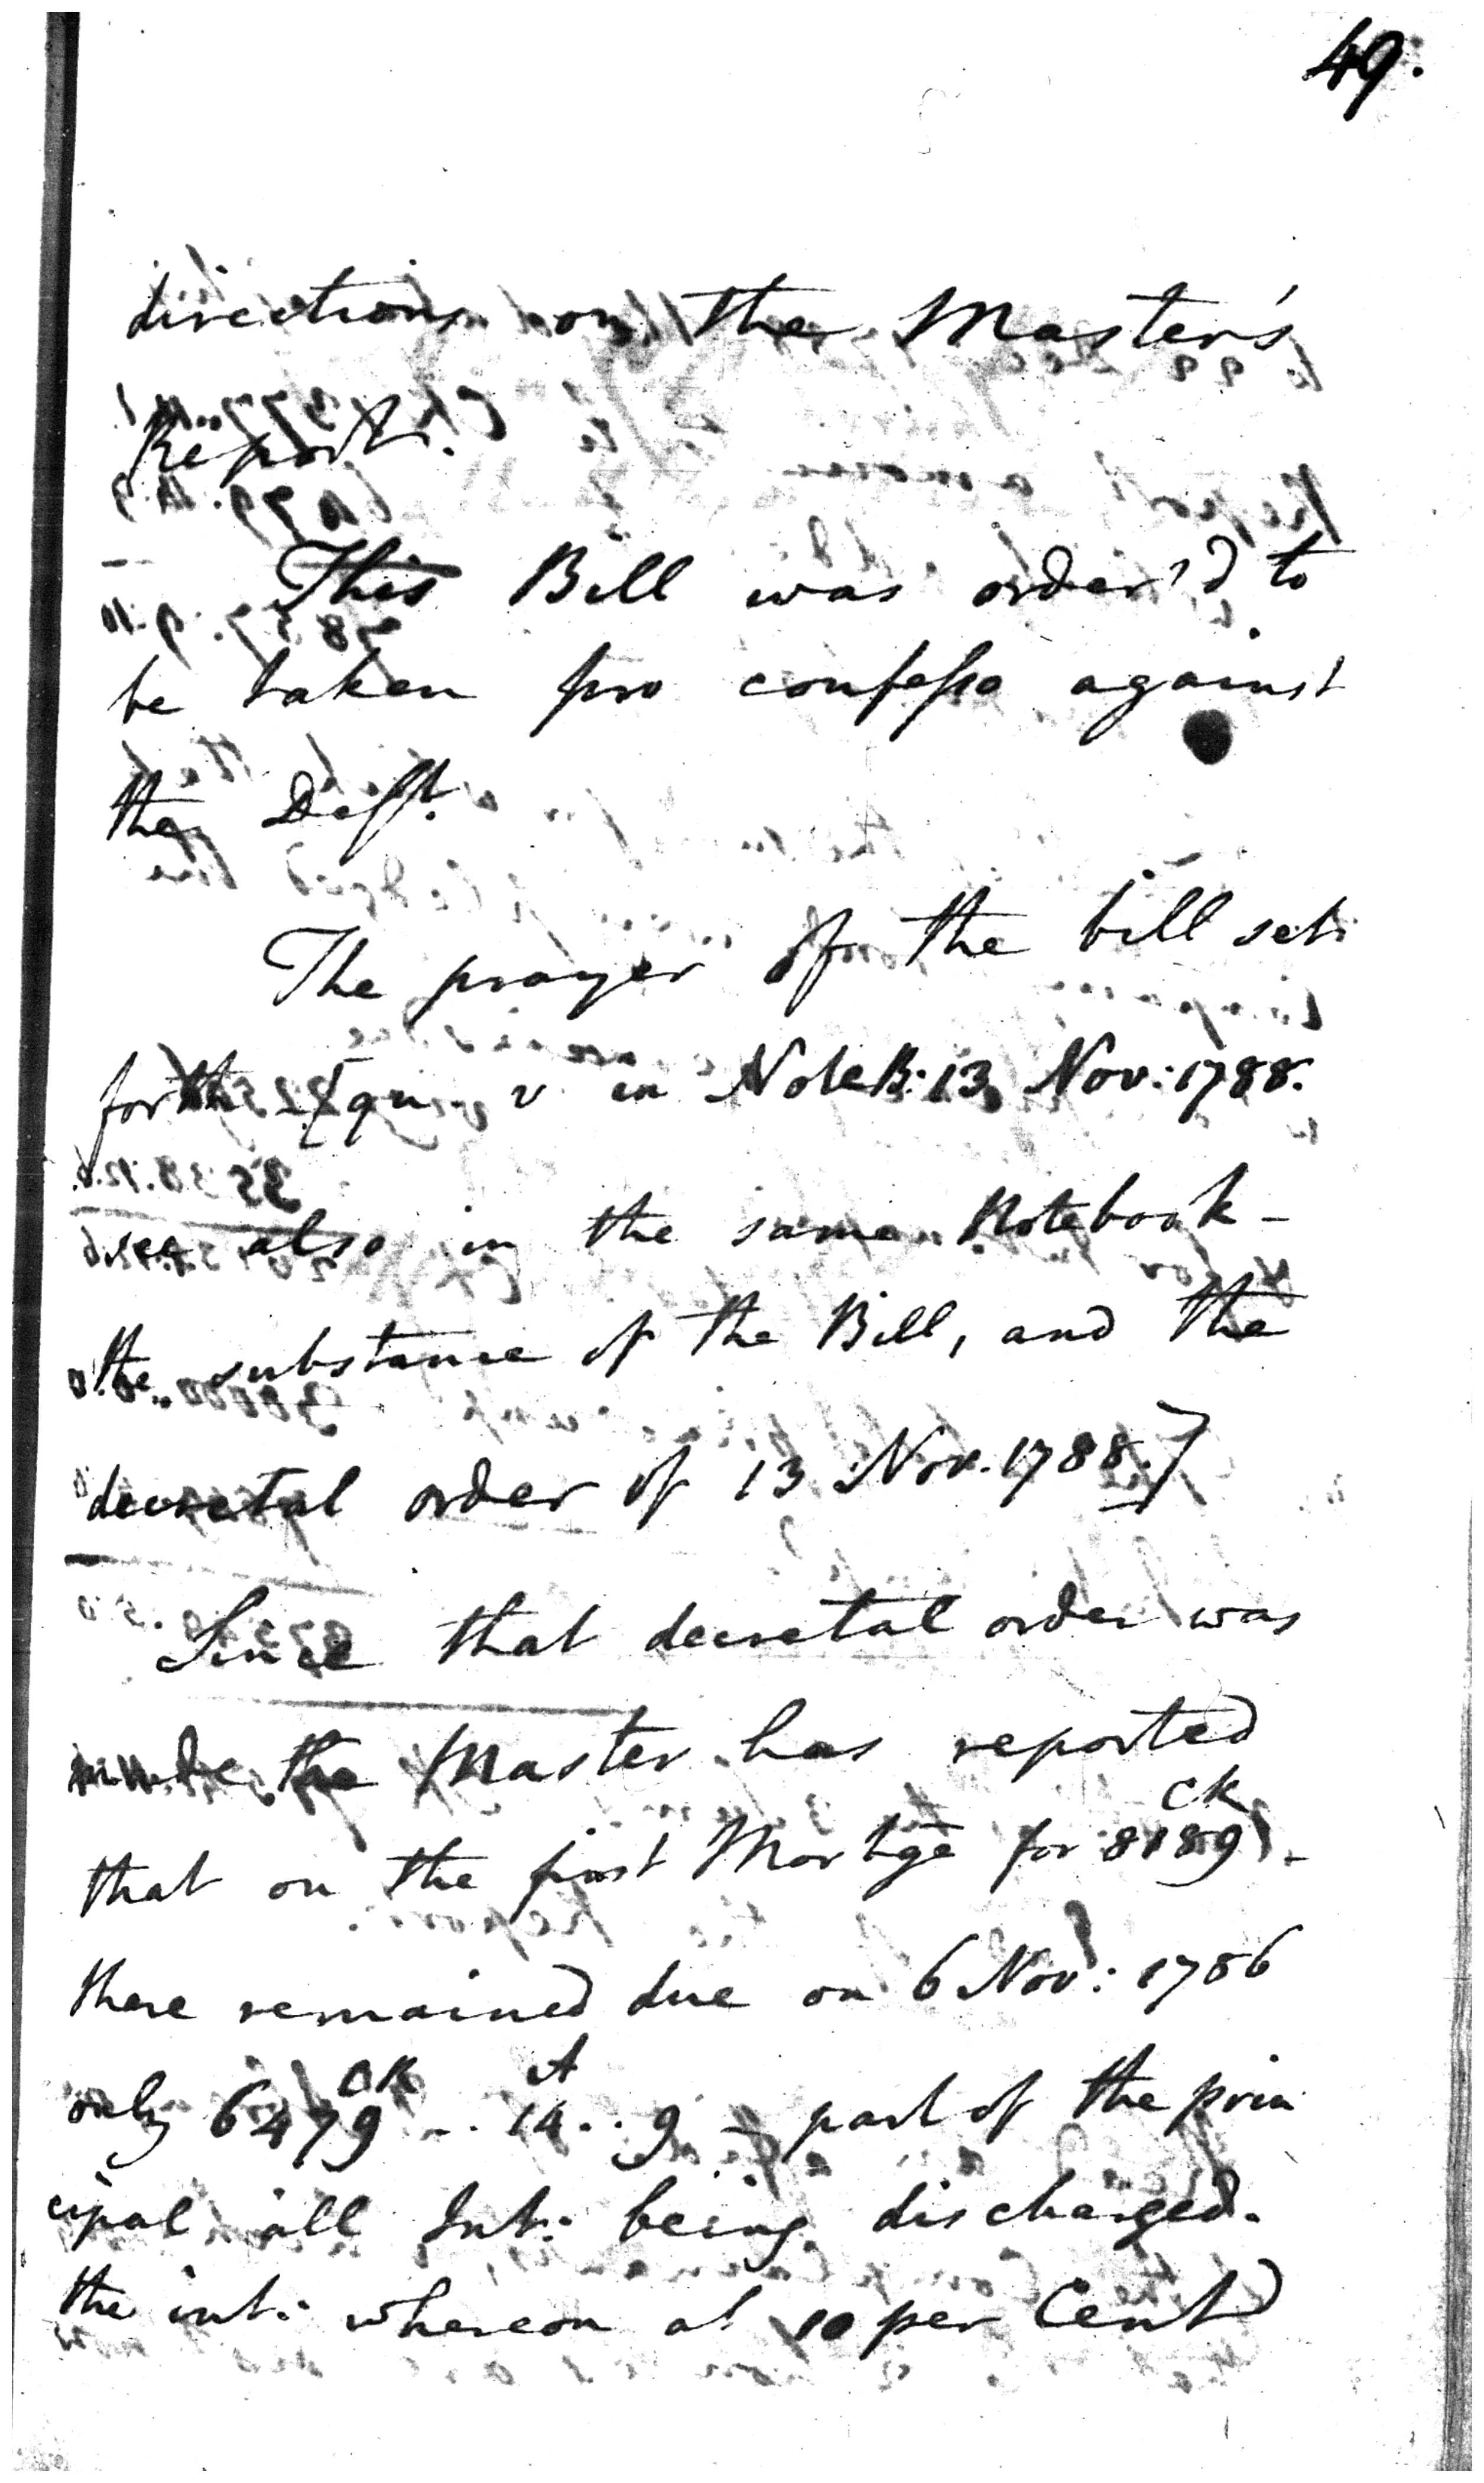 49.
directions on the Master's
Report.
This Bill was order'd to
be taken pro confesso against
the Deft.
The prayer of the bill sets
forth [qu. v in NoteB: 13 Nov: 1788.
see also in the same Notebook -
the substance of the Bill, and the
decretal order of 13 Nov. 1788.]
Since that decretal order was
made the Master has reported
that on the first Mortge for CR 8189 -
there remained due on 6 Nov: 1786
only CR 6479 .. A 14 .. 9 - part of the prin
cipal all Int: being discharged.
the int: whereon at 10 per Cent